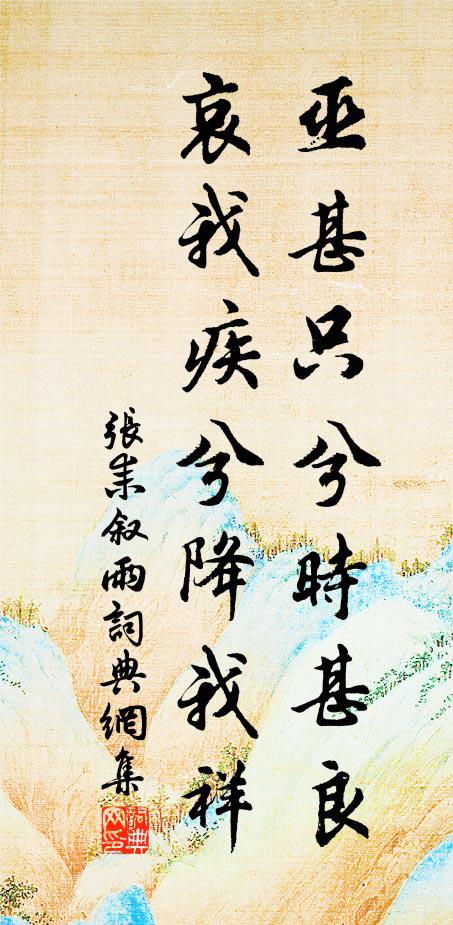 巫甚只兮時甚良
哀我疾兮降我祥
張耒叙雨詞典網集
詞典
网印